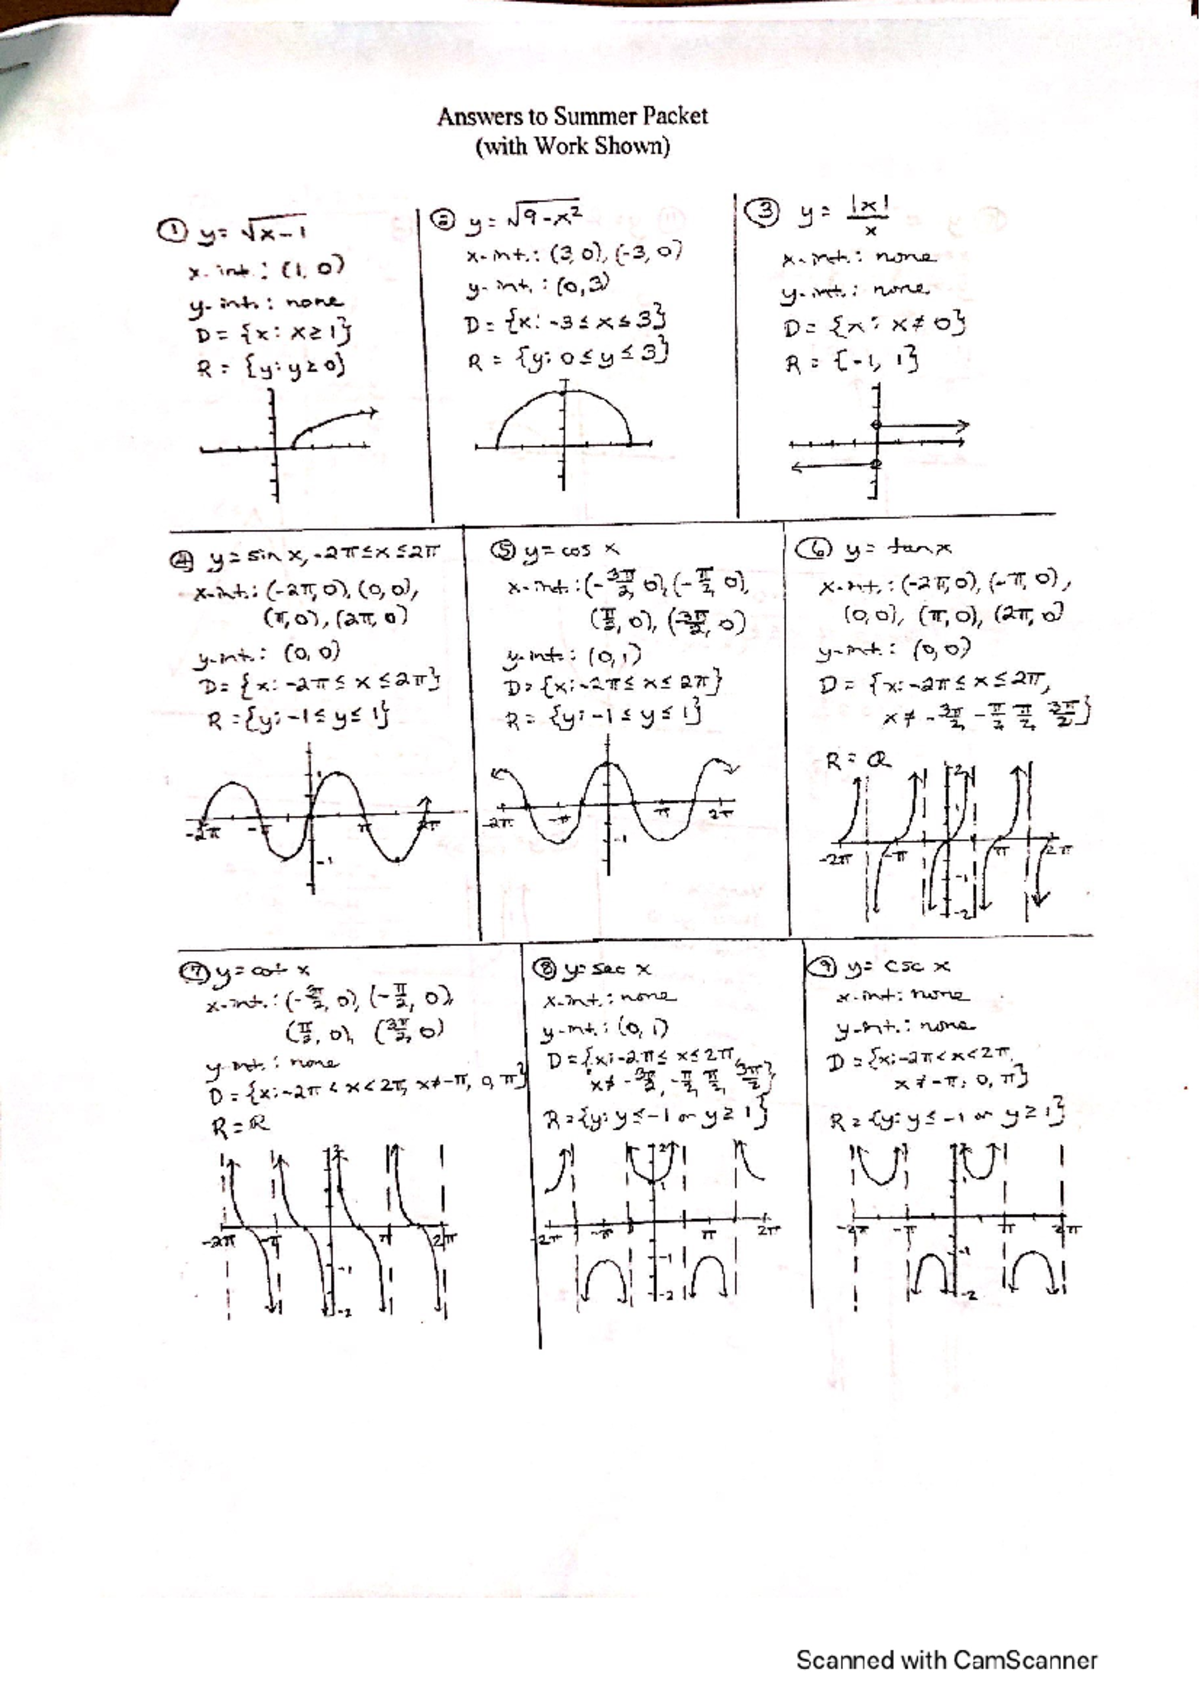 Answers to Summer Packet
(with Work Shown)
① y = √x-1
x-int.: (1, 0)
y-int.: none
D = {x: x ≥ 1}
R = {y: y ≥ 0}
② y = √9-x²
x-int.: (3, 0), (-3, 0)
y-int.: (0, 3)
D = {x: -3 ≤ x ≤ 3}
R = {y: 0 ≤ y ≤ 3}
③ y = |x|/x
x-int.: none
y-int.: none
D = {x: x ≠ 0}
R = {-1, 1}
④ y = sin x, -2π ≤ x ≤ 2π
x-int.: (-2π, 0), (0, 0),
(π, 0), (2π, 0)
y-int.: (0, 0)
D = {x: -2π ≤ x ≤ 2π}
R = {y: -1 ≤ y ≤ 1}
1
-2π -π π 2π
-1
⑤ y = cos x
x-int.: (-3π/2, 0), (-π/2, 0),
(π/2, 0), (3π/2, 0)
y-int.: (0, 1)
D = {x: -2π ≤ x ≤ 2π}
R = {y: -1 ≤ y ≤ 1}
-2π -π π 2π
-1
⑥ y = tan x
x-int.: (-2π, 0), (-π, 0),
(0, 0), (π, 0), (2π, 0)
y-int.: (0, 0)
D = {x: -2π ≤ x ≤ 2π,
x ≠ -3π/2, -π/2, π/2, 3π/2}
R = ℝ
2
1
-2π -π π 2π
-1
-2
⑦ y = cot x
x-int.: (-3π/2, 0), (-π/2, 0),
(π/2, 0), (3π/2, 0)
y-int.: none
D = {x: -2π < x < 2π, x ≠ -π, 0, π}
R = ℝ
2
-2π -π π 2π
-1
-2
⑧ y = sec x
x-int.: none
y-int.: (0, 1)
D = {x: -2π ≤ x ≤ 2π,
x ≠ -3π/2, -π/2, π/2, 3π/2}
R = {y: y ≤ -1 or y ≥ 1}
2
1
-2π -π π 2π
-1
-2
⑨ y = csc x
x-int: none
y-int.: none
D = {x: -2π < x < 2π,
x ≠ -π, 0, π}
R = {y: y ≤ -1 or y ≥ 1}
2
1
-2π -π π 2π
-1
-2
Scanned with CamScanner